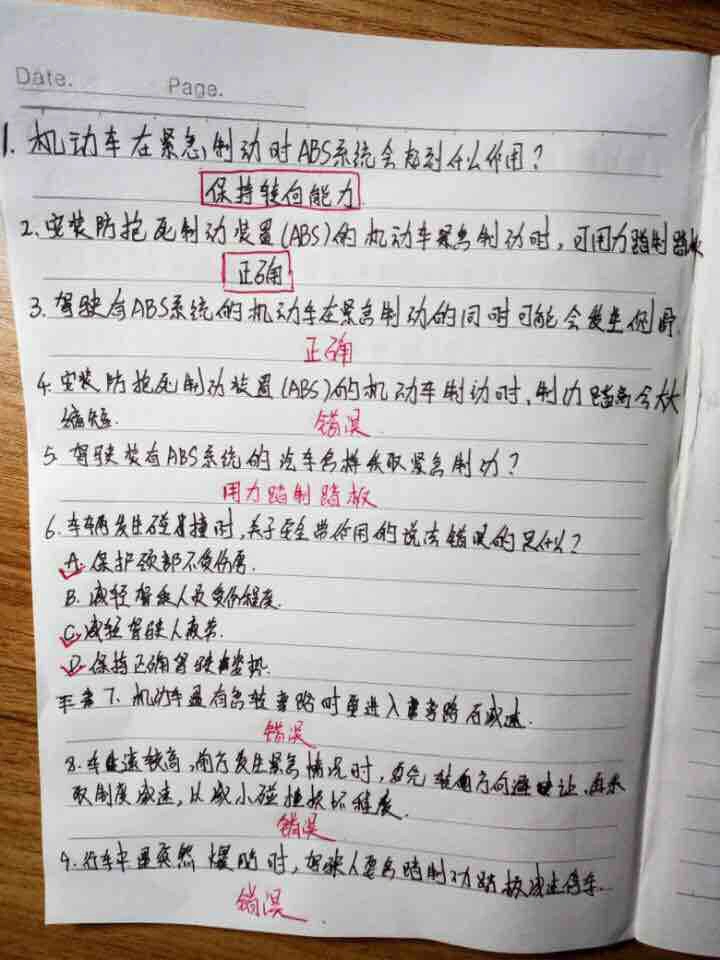 Date. Page.
1. 机动车在紧急制动时ABS系统会起到什么作用?
保持转向能力
2. 安装防抱死制动装置(ABS)的机动车紧急制动时,可用力踏制踏板
正确
3. 驾驶有ABS系统的机动车在紧急制动的同时可能会发生侧滑.
正确
4. 安装防抱死制动装置(ABS)的机动车制动时,制动距离会大大
缩短.
错误
5. 驾驶装有ABS系统的汽车怎样采取紧急制动?
用力踏制踏板
6. 车辆发生碰撞时,关于安全带作用的说法错误的是什么?
A. 保护颈部不受伤害.
B. 减轻驾驶人员受伤程度.
C. 减轻驾驶人疲劳.
D. 保持正确驾驶坐势.
7. 机动车遇有急弯道路时要进入弯道路后减速.
错误
8. 车速较高,前方发生紧急情况时,要先转动方向避让,再采
取制度减速,以减小碰撞损坏程度.
错误
9. 行车中遇突然爆胎时,驾驶人要急踏制动踏板减速停车.
错误